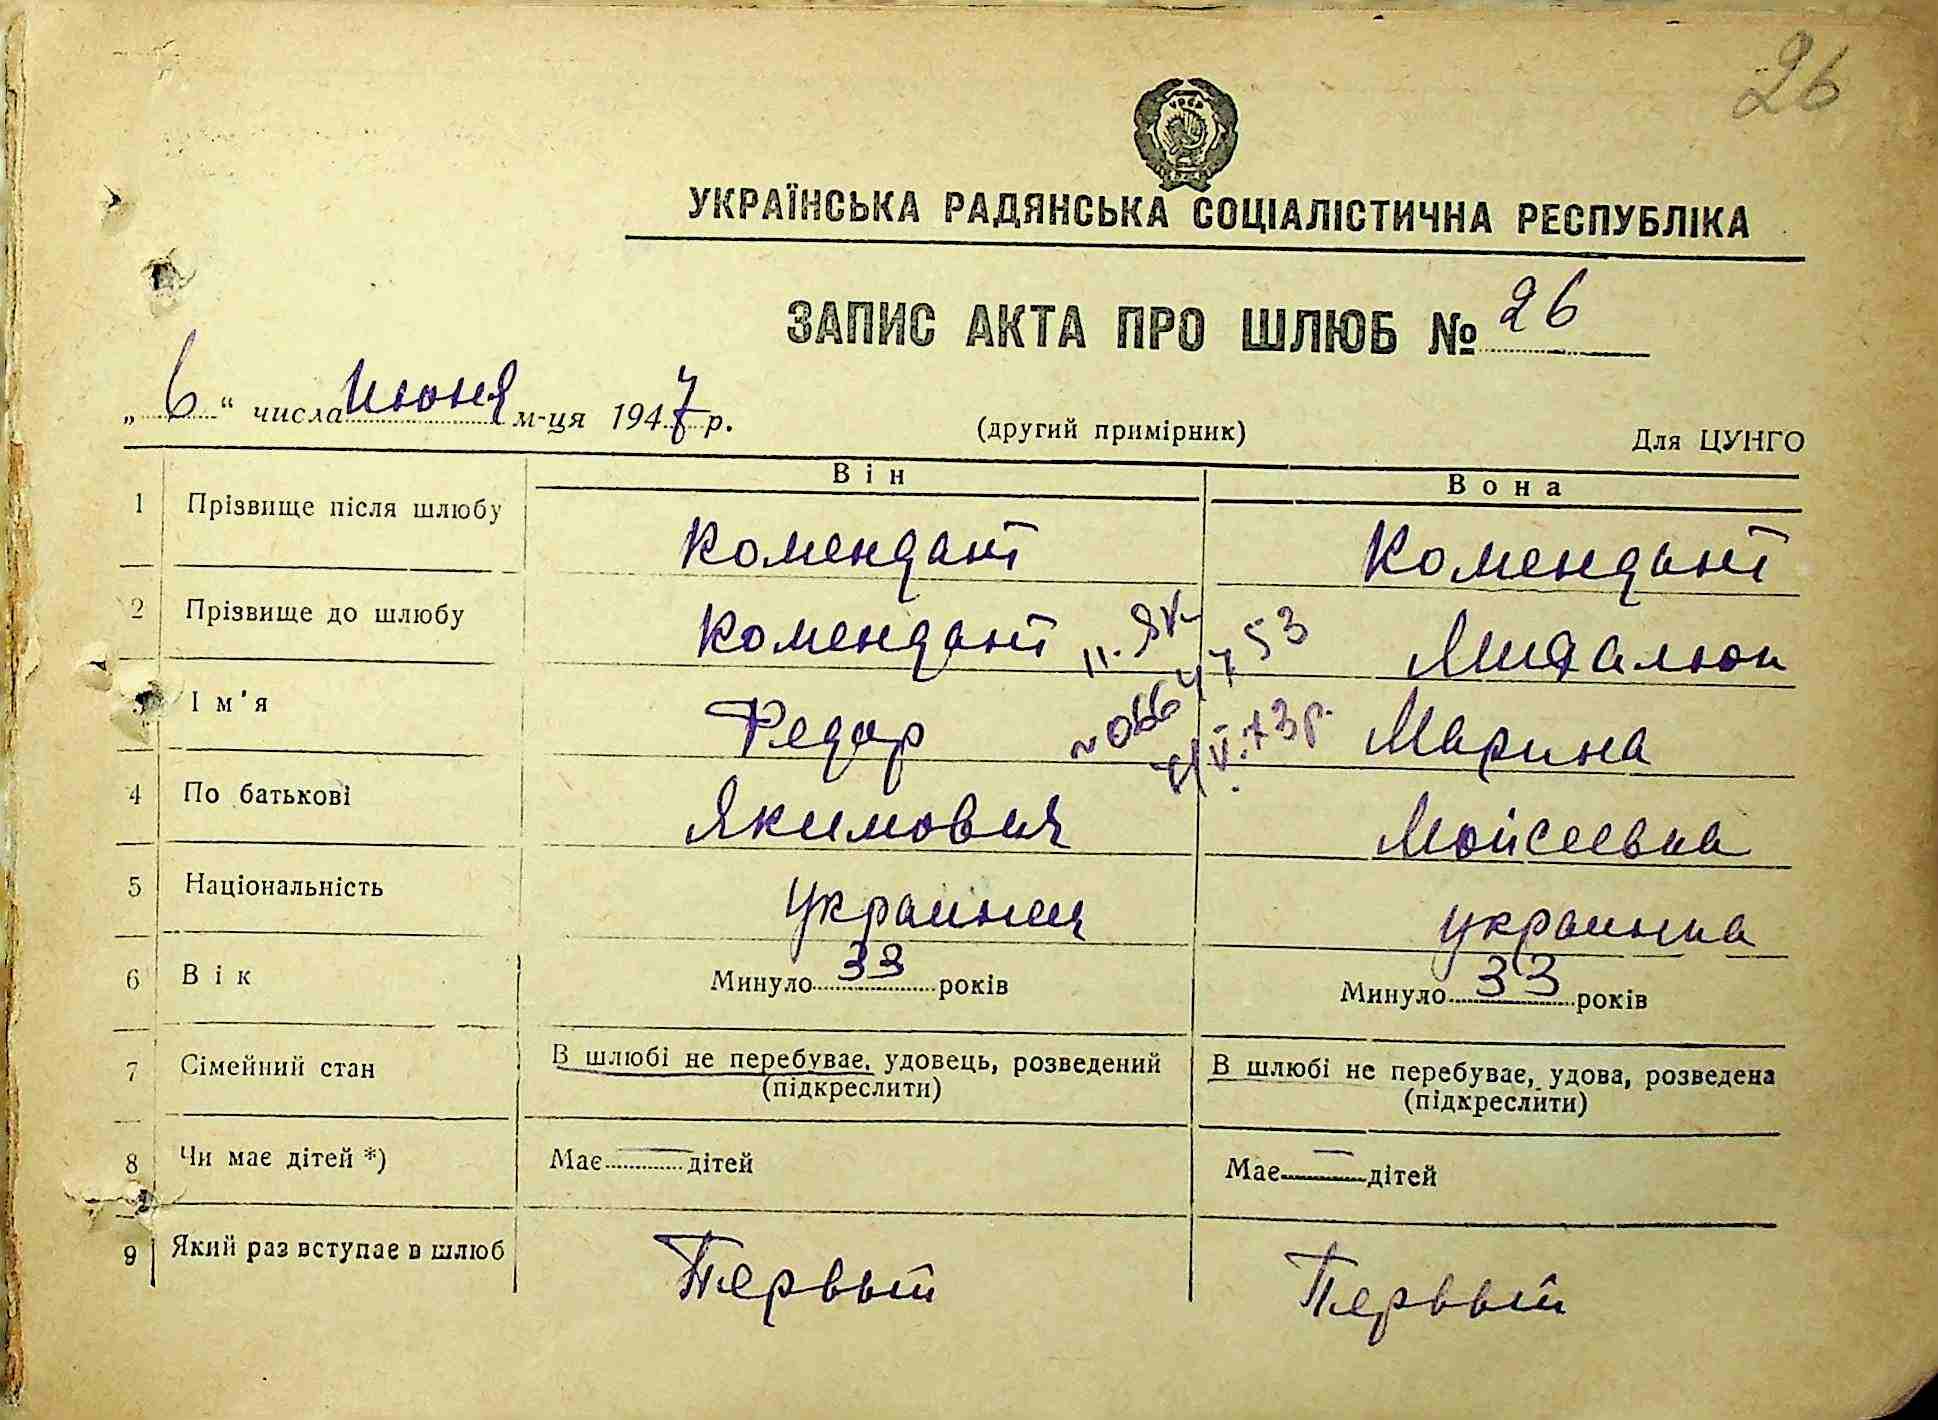 26
УРСР
УКРАЇНСЬКА РАДЯНСЬКА СОЦІАЛІСТИЧНА РЕСПУБЛІКА
ЗАПИС АКТА ПРО ШЛЮБ № 26
„6“ числа июня м-ця 1947 р.
(другий примірник)
Для ЦУНГО
Він Вона
1 Прізвище після шлюбу Комендант Комендант
2 Прізвище до шлюбу Комендант
II. ЯК
№ 0664753
V.73 р.
3 Ім'я Федор Марина
4 По батькові Якимович Мойсеевна
5 Національність украинец украинка
6 Вік Минуло 33 років Минуло 33 років
7 Сімейний стан В шлюбі не перебуває, удовець, розведений В шлюбі не перебуває, удова, розведена
(підкреслити) (підкреслити)
8 Чи має дітей *) Має — дітей Має — дітей
9 Який раз вступає в шлюб Первый Первый